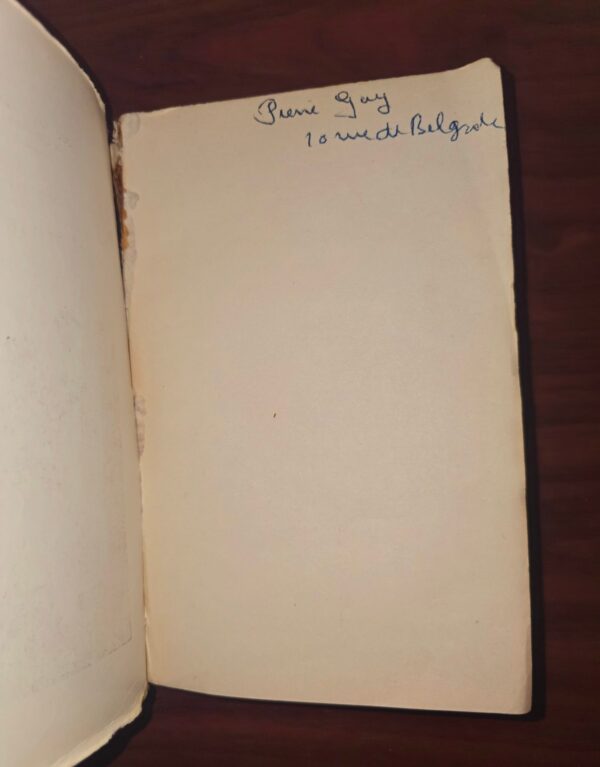 Pierre Gay
10 rue de Belgrade